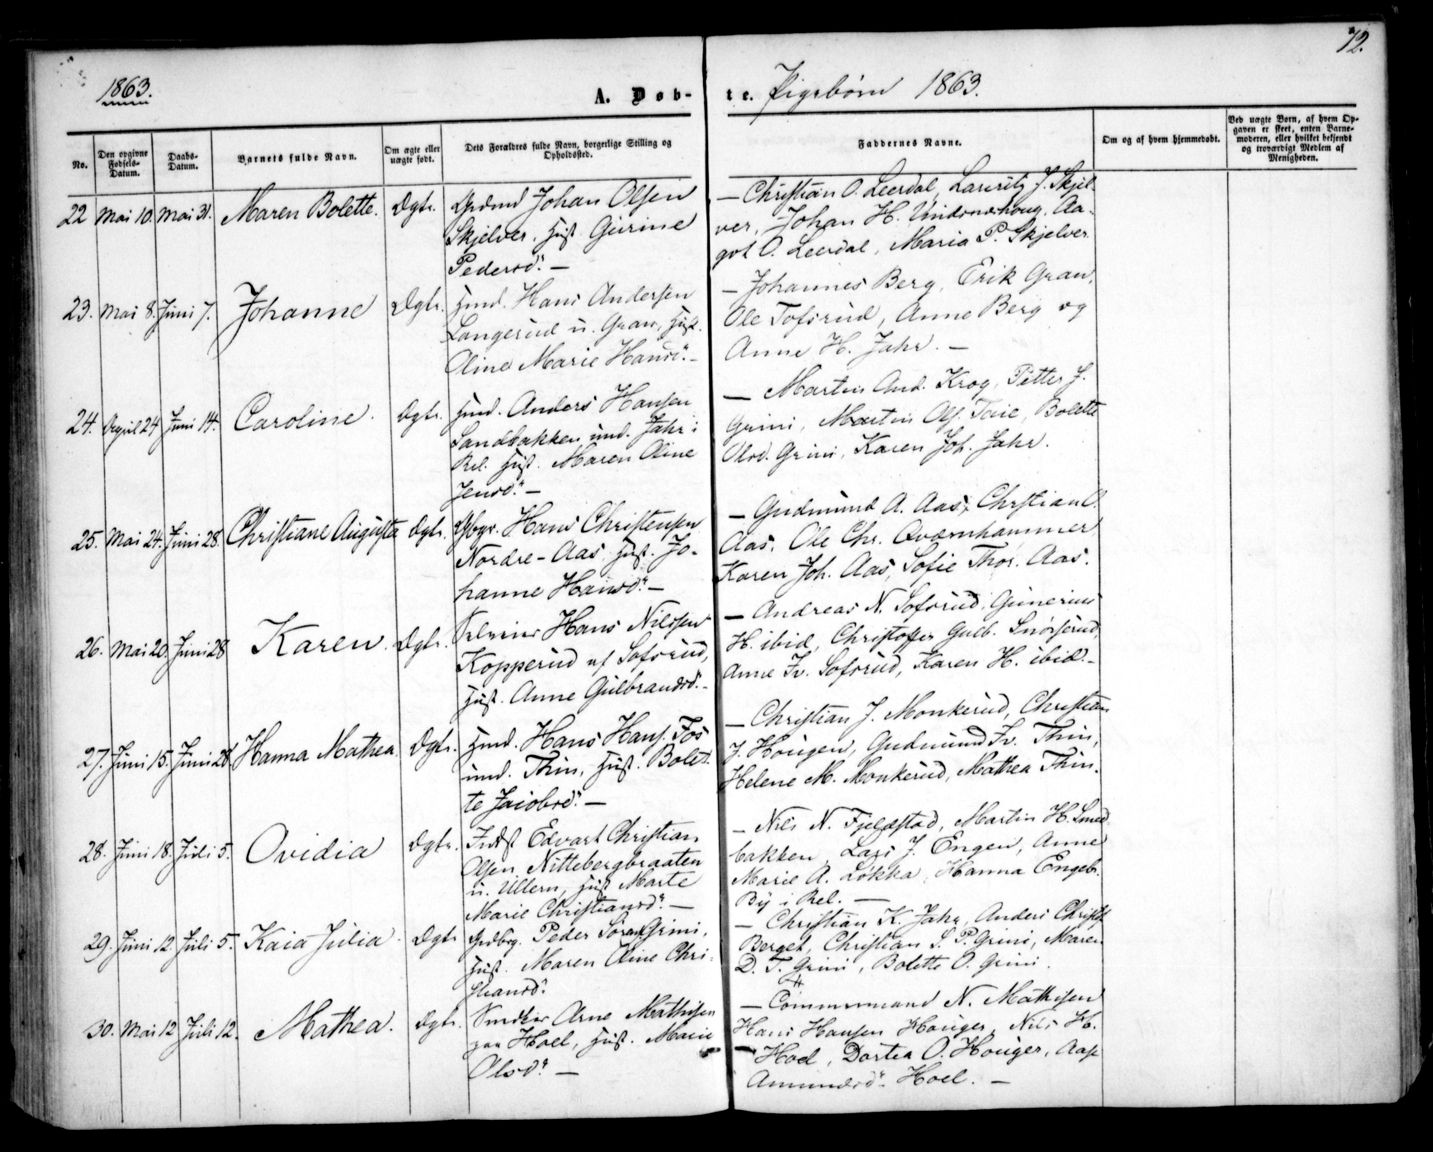 1863.
A. Døb-
te. Pigebørn 1863.
12.
No.
Den opgivne Fødsels-Datum.
Daabs-Datum.
Barnets fulde Navn.
Om ægte eller uægte født.
Dets Forældres fulde Navn, borgerlige Stilling og Opholdssted.
Faddernes Navne.
Om og af hvem hjemmedøbt.
Ved uægte Børn, af hvem Opgaven er skeet, enten Barnemoderen, eller hvilket bekjendt og troværdigt Medlem af Menigheden.
22 Mai 10. Mai 31. Maren Bolette. Dgtr.
Grdmd Johan Olsen
Skjelver, Hust. Gurine
Pedersd. —
— Christian O. Leerdal, Lauritz J. Skjel-
ver, Johan H. Undereshoug, Aa-
got O. Leerdal, Maria P. Skjelver
23. Mai 8. Juni 7. Johanne Dgtr.
Husmd. Hans Andersen
Langerud u. Gran, Hust.
Oline Marie Hansd. —
— Johannes Berg, Erik Gran,
Ole Tofsrud, Anne Berg og
Anne H. Jahr. —
24. April 24 Juni 14. Caroline. Dgtr.
Husmd. Anders Hansen
Sandbakken und. Jahr i
Rel. Hust. Maren Oline
Jensd. —
— Martin And. Krog, Petter J.
Grini, Martin Ols. Taie, Bolette
Olsd. Grini, Karen Joh. Jahr.
25. Mai 24. Juni 28. Christiane Augusta Dgtr.
Gbgr. Hans Christensen
Nordre-Aas Hust. Jo-
hanne Hansd. —
— Gudmund A. Aas, Christian O.
Aas, Ole Chr. Qværnhammer,
Karen Joh. Aas, Sofie Thor. Aas.
26. Mai 20. Juni 28 Karen. Dgtr.
Selveier Hans Nilssen
Kopperud af Sofsrud,
Hust. Anne Gulbrandsd. —
— Andreas N. Sofsrud, Gunerius
H. ibid, Christoffer Gulb. Snørsrud,
Anne Fr. Sofsrud, Karen H. ibid. —
27. Juni 15. Juni 28 Hanna Mathea. Dgtr.
Husmd. Hans Hans. Fos
und. Thin, Hust. Bolet-
te Jacobsd. —
— Christian J. Monkerud, Christian
J. Hougen, Gudmund Fr. Thin,
Helene M. Monkerud, Mathea Thin.
28. Juni 18. Juli 5. Ovidia Dgtr.
Indst Edvart Christian
Olsen Nittebergbraaten
u. Ullern, Hust Marte
Marie Christiansd. —
— Nils N. Fjeldstad, Martin H. Smed-
bakken, Lars J. Engen, Anne
Marie A. Løkka, Hanna Engeb.
By i Rel. —
29. Juni 12. Juli 5. Kaia Julia. Dgtr.
Grdbrg. Peder Søren Grini,
Hust. Maren Oline Chri-
stiansd.
— Christian K. Jahr, Anders Christ.
Berget, Christian S. P. Grini, Maren
D. T. Grini, Bolette O. Grini.
30. Mai 12 Juli 12. Mathea. Dgtr.
Snedker Arne Mathisen
paa Hoel, Hust. Marie
Olsd. —
— N. Mathisen
Hans Hansen Houger, Nils H.
Hoel, Dortea O. Houger,
Amundsd. Hoel. —